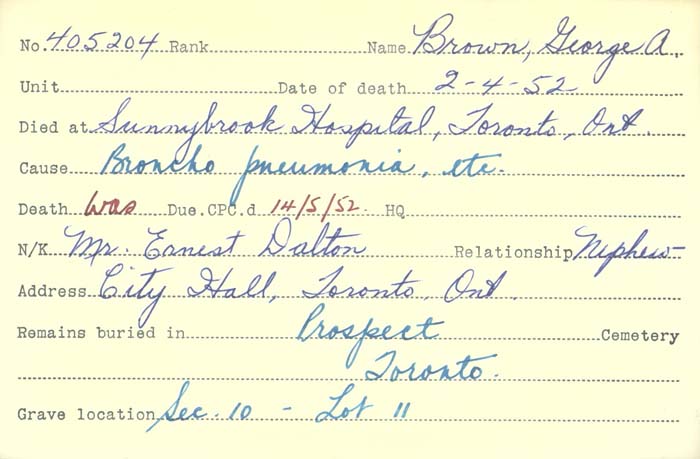 No. 405204 Rank Name Brown, George A.
Unit Date of death 2-4-52
Died at Sunnybrook Hospital, Toronto, Ont.
Cause Broncho pneumonia, etc.
Death was Due. CPC.d 14/5/52 HQ
N/K Mr. Ernest Dalton Relationship Nephew
Address City Hall, Toronto, Ont.
Remains buried in Prospect Cemetery
Toronto.
Grave location Sec. 10 - Lot 11